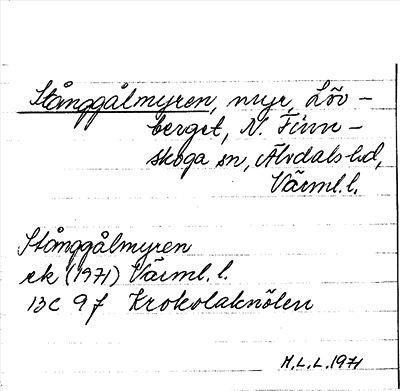 Stånggålmyren, myr, Löv-
berget, N. Finn-
skoga sn, Älvdals hd,
Värml. l.
Stånggålmyren
ek (1971) Värml. l.
13C 9f Krokolaknölen
M.L.L. 1971